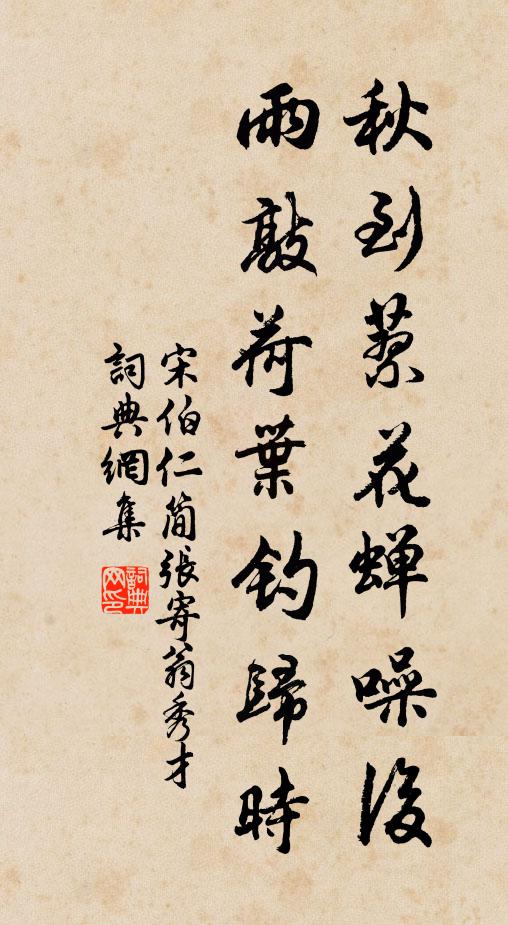 秋到蔡花蝉噪後
雨敲荷葉钓歸時
宋伯仁简張寄翁秀才
詞典網集
詞典网印